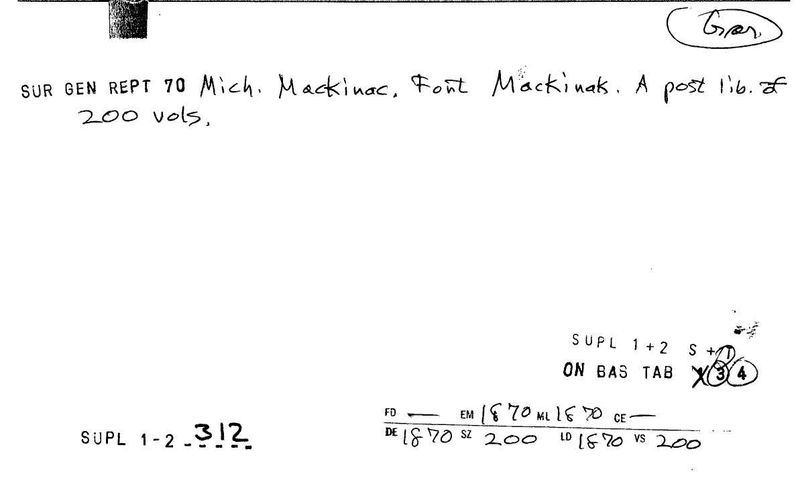 Gar.
SUR GEN REPT 70 Mich. Mackinac. Font Mackinak. A post lib. of
200 vols.
SUPL 1+2 S+
ON BAS TAB X 3 4
FD — EM 1870 ML 1870 CE —
SUPL 1-2 - 312
DE 1870 SZ 200 LD 1870 VS 200